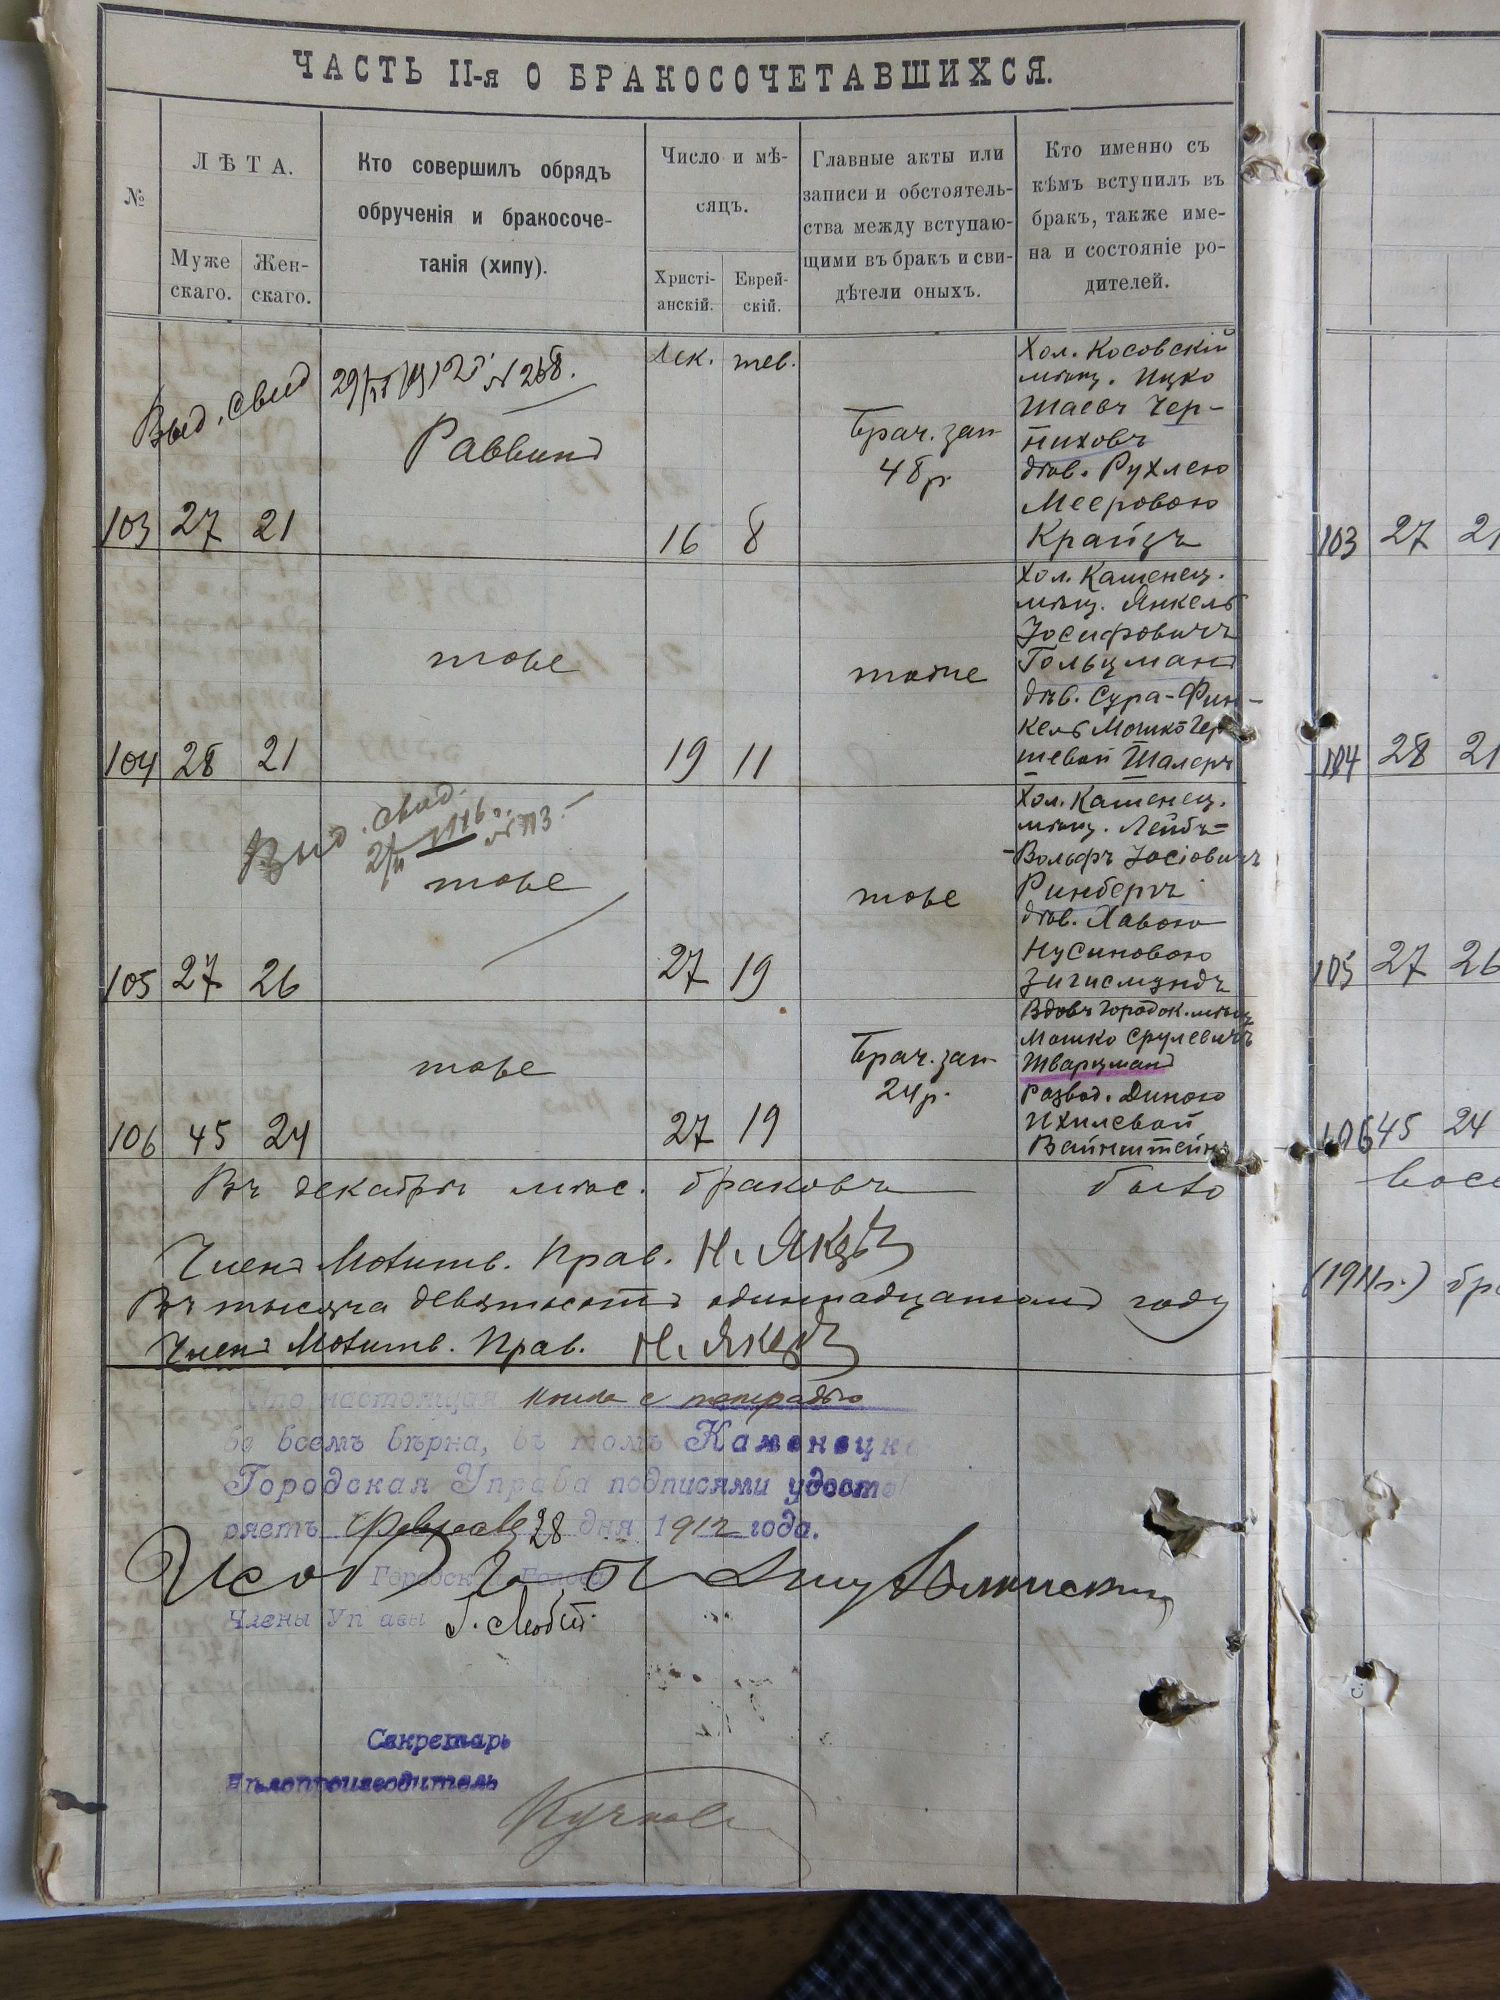 ЧАСТЬ II-я О БРАКОСОЧЕТАВШИХСЯ.
№
ЛѢТА.
Муже
скаго.
Жен-
скаго.
Кто совершилъ обрядъ
обрученія и бракосоче-
танія (хипу).
Число и мѣ-
сяцъ.
Христі-
анскій.
Еврей-
скій.
Главные акты или
записи и обстоятель-
ства между вступаю-
щими въ бракъ и сви-
дѣтели оныхъ.
Кто именно съ
кѣмъ вступилъ въ
бракъ, также име-
на и состояніе ро-
дителей.
Выд. свид
№ 268.
Дек. тев.
Раввинъ
Брач. зап
48 р.
Хол. Косовскій
мѣщ. Ицко
Шаевъ Чер-
ниховъ
дѣв. Рухлею
Мееровою
Крайцъ
103 27 21 16 8
103 27 21
тоже
тоже
Хол. Каменец.
мѣщ. Янкель
Іосифовичъ
Гольцманъ
дѣв. Сура-Фин-
кель Мошко Гер
шевой Шалеръ
104 28 21 19 11
104 28 21
Выд. свид.
№ 113
тоже
тоже
Хол. Каменец.
мѣщ. Лейбъ=
-Вольфъ Іосіовичъ
Ринбергъ
дѣв. Хавою
Нусиновою
Зигисмундъ
105 27 26 27 19
105 27 26
тоже
Брач. зап
24 р.
Вдовъ Городок. мѣщ
Мошко Срулевичъ
Шварцманъ
Развод. Диною
Ихилевой
Вайнштейнъ
106 45 24 27 19
106 45 24
Въ декабрѣ мѣс. браковъ было
Членъ Молитв. Прав. Н. Якзъ
Въ тысяча девятьсотъ одиннадцатомъ году
(1911 г.) бра
Членъ Молитв. Прав. Н. Якзъ
Что настоящая книга с тетрадью
во всемъ вѣрна, въ томъ Каменецка
Городская Управа подписями удосто
ряетъ Февраля 28 дня 1912 года.
Городск Голова
Члены Уп авы
Секретарь
Дѣлопроизводитель